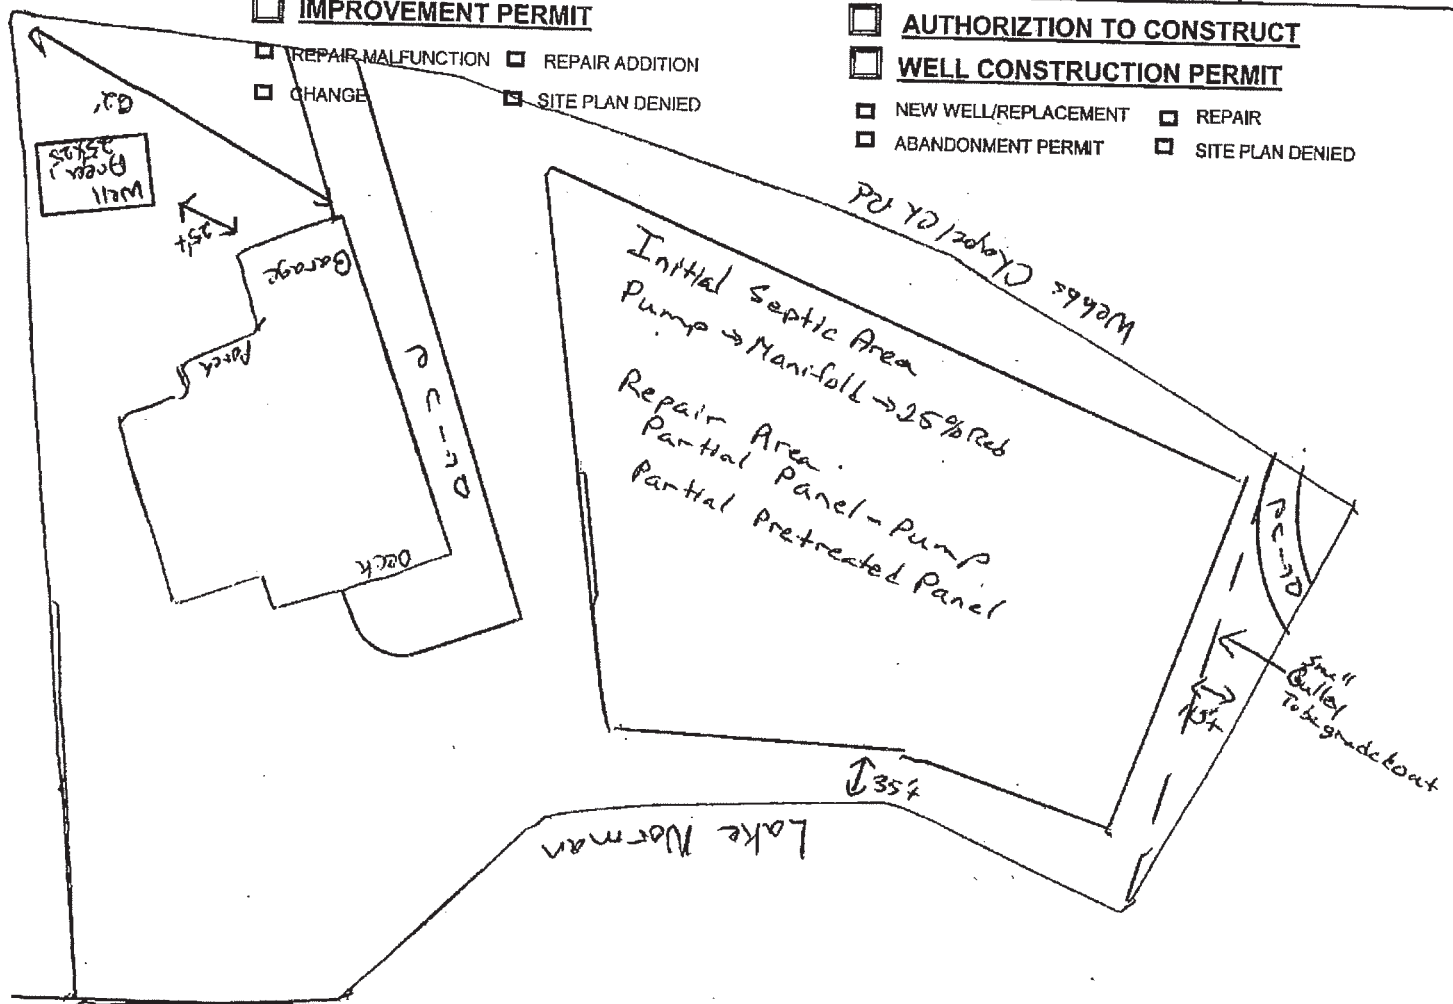 IMPROVEMENT PERMIT
REPAIR MALFUNCTION
REPAIR ADDITION
CHANGE
SITE PLAN DENIED
AUTHORIZTION TO CONSTRUCT
WELL CONSTRUCTION PERMIT
NEW WELL/REPLACEMENT
REPAIR
ABANDONMENT PERMIT
SITE PLAN DENIED
Well
Area
25x25
25'+
Garage
Porch
Deck
Webbs Chapel Ch Rd
Initial Septic Area
Pump → Manifold → 25% Red
Repair Area.
Partial Panel - Pump
Partial Pretreated Panel
Small
Gulley
To be graded out
15'+
35'+
Lake Norman